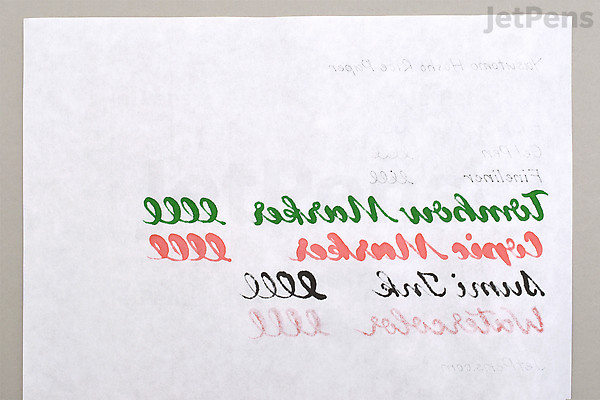 JetPens
Yasutomo Hosho Rice Paper
Gel Pen
Fineliner
Tombow Marker
Copic Marker
Sumi Ink
Watercolor
JetPens.com